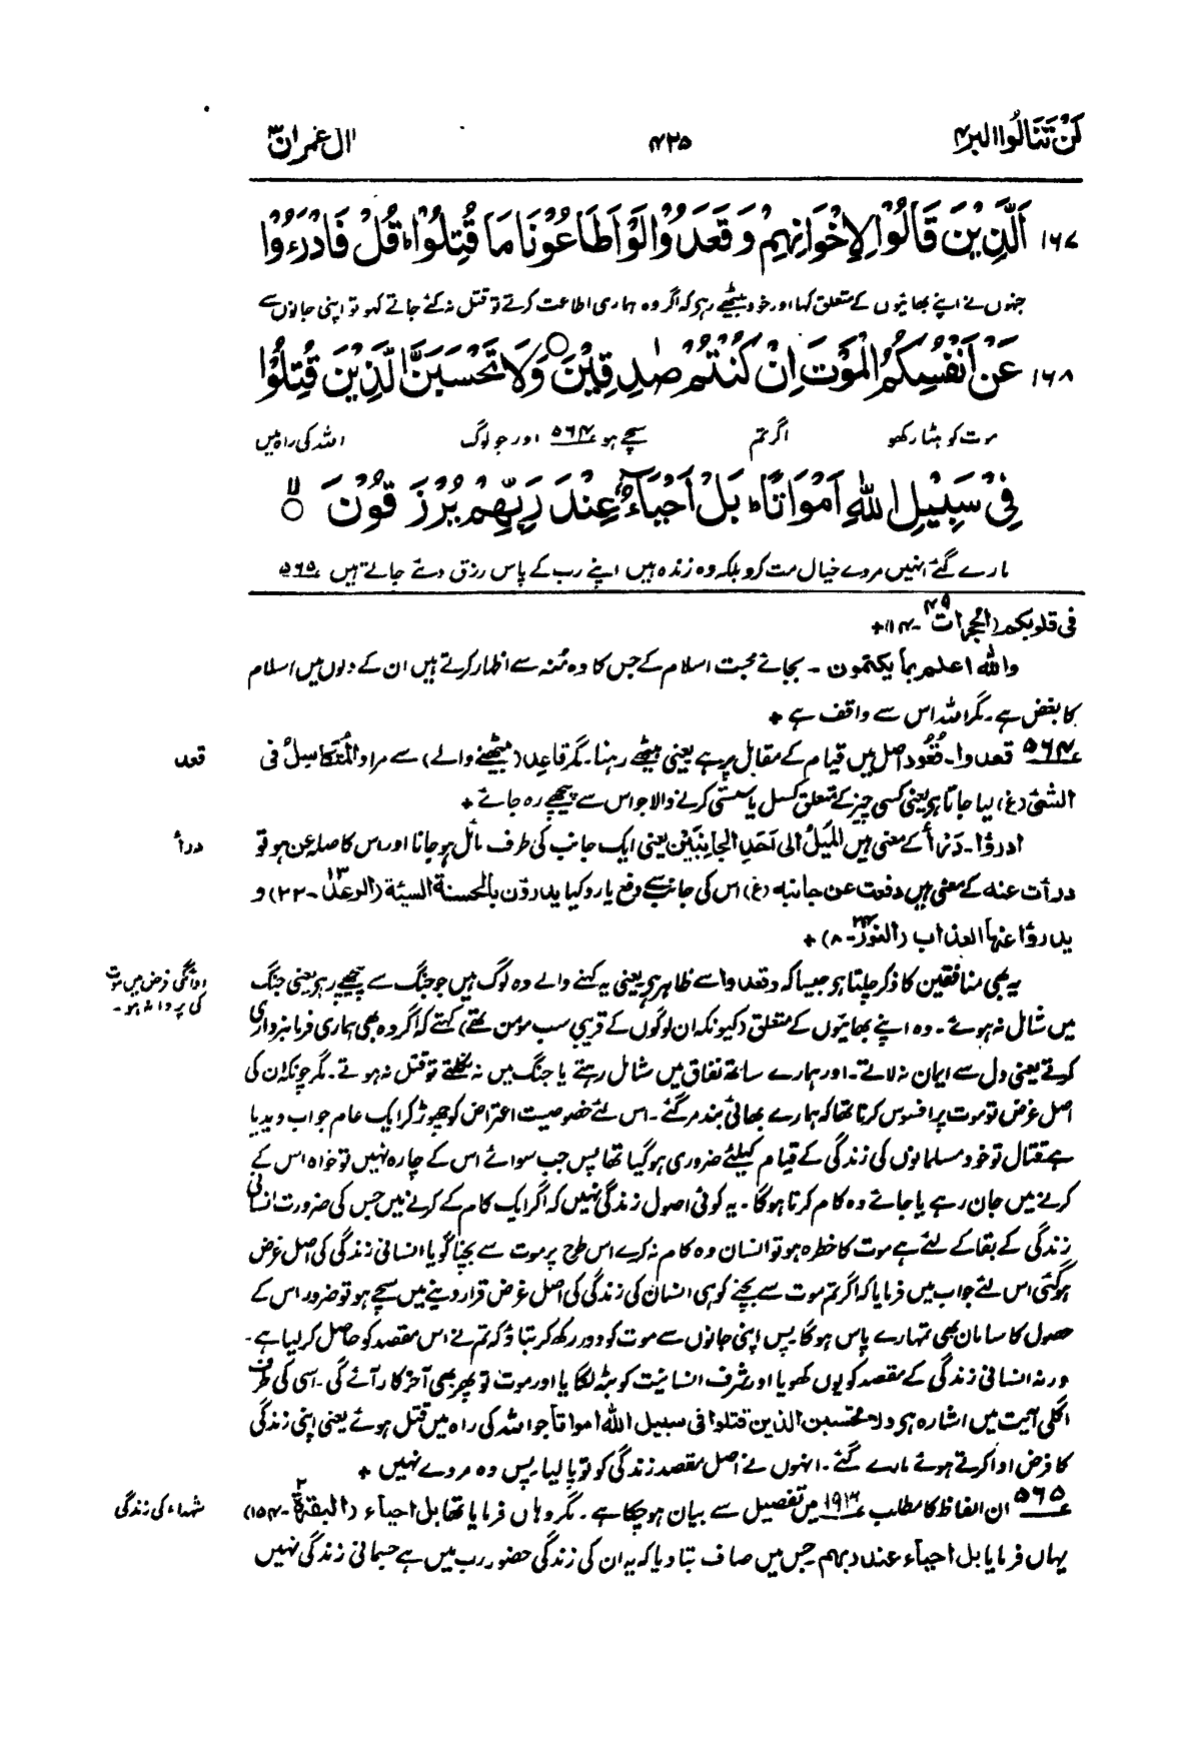 لَنْ تَنَالُوا البر ۴ ۴۲۵ اٰل عمرٰن ۳
۱۶۷ اَلَّذِيْنَ قَالُوْا لِاِخْوَانِهِمْ وَقَعَدُوْا لَوْ اَطَاعُوْنَا مَا قُتِلُوْا ؕ قُلْ فَادْرَءُوْا
جنہوں نے اپنے بھائیوں کے متعلق کہا اور خود بیٹھے رہے کہ اگر وہ ہماری اطاعت کرتے تو قتل نہ کئے جاتے کہو تو اپنی جانوں سے
۱۶۸ عَنْ اَنْفُسِكُمُ الْمَوْتَ اِنْ كُنْتُمْ صٰدِقِيْنَ ○ وَلَا تَحْسَبَنَّ الَّذِيْنَ قُتِلُوْا
موت کو ہٹا رکھو اگر تم سچے ہو ۵۶۴ اور جو لوگ اللہ کی راہ میں
فِيْ سَبِيْلِ اللّٰهِ اَمْوَاتًا ؕ بَلْ اَحْيَآءٌ عِنْدَ رَبِّهِمْ يُرْزَقُوْنَ ○ۙ
مارے گئے انہیں مردے خیال مت کرو بلکہ وہ زندہ ہیں اپنے رب کے پاس رزق دئے جاتے ہیں ۵۶۵
فی قلوبکم (الحجرات ۴۹-۱۴)+
واللہ اعلم بما یکتمون ۔ بجائے محبت اسلام کے جس کا وہ مُنہ سے اظہار کرتے ہیں ان کے دلوں میں اسلام
کا بغض ہے۔ مگر اللہ اس سے واقف ہے +
۵۶۴ قعدوا۔ قُعُود اصل میں قیام کے مقابل پر ہے یعنی بیٹھے رہنا۔ مگر قاعد (بیٹھنے والے) سے مراد المُتَکَاسِلُ فی
قعد
الشیٔ (غ) لیا جاتا ہو یعنی کسی چیز کے متعلق کسل یا سستی کرنے والا جو اس سے پیچھے رہ جائے +
ادرؤا۔ دَرْأ کے معنی ہیں المَیلُ الی اَحَدِ الجَانِبَیْنِ یعنی ایک جانب کی طرف مائل ہو جانا اور اس کا صلہ عن ہو تو
درأ
درأت عنہ کے معنی ہیں دفعت عن جانبہ (غ) اس کی جانب سے دفع یا رد کیا یدرؤن بالحسنة السيئة (الرعد ۱۳-۲۲) و
یدرؤا عنہا العذاب (النور ۲۴-۸) +
یہ بھی منافقین کا ذکر چلتا ہو جیسا کہ وقعدوا سے ظاہر ہو یعنی یہ کہنے والے وہ لوگ ہیں جو جنگ سے پیچھے رہے یعنی جنگ
ادائگی فرض میں موت
کی پروا نہ ہو۔
میں شامل نہ ہوئے۔ وہ اپنے بھائیوں کے متعلق (کیونکہ ان لوگوں کے قریبی سب مؤمن تھے) کہتے کہ اگر وہ بھی ہماری فرمانبرداری
کرتے یعنی دل سے ایمان نہ لاتے۔ اور ہمارے ساتھ نفاق میں شامل رہتے یا جنگ میں نہ نکلتے تو قتل نہ ہوتے۔ مگر چونکہ ان کی
اصل غرض تو موت پر افسوس کرنا تھا کہ ہمارے بھائی بند مر گئے۔ اس لئے خصوصیت اعتراض کو چھوڑ کر ایک عام جواب دیدیا
ہے قتال تو خود مسلمانوں کی زندگی کے قیام کیلئے ضروری ہو گیا تھا پس جب سوائے اس کے چارہ نہیں تو خواہ اس کے
کرنے میں جان رہے یا جائے وہ کام کرنا ہوگا۔ یہ کوئی اصول زندگی نہیں کہ اگر ایک کام کے کرنے میں جس کی ضرورت انسانی
زندگی کے بقا کے لئے ہے موت کا خطرہ ہو تو انسان وہ کام نہ کرے اس طرح پر موت سے بچنا گویا انسانی زندگی کی اصل غرض
ہو گئی اس لئے جواب میں فرمایا کہ اگر تم موت سے بچنے کو ہی انسان کی زندگی کی اصل غرض قرار دینے میں سچے ہو تو ضرور اس کے
حصول کا سامان بھی تمہارے پاس ہوگا پس اپنی جانوں سے موت کو دور رکھ کر بتاؤ کہ تم نے اس مقصد کو حاصل کر لیا ہے۔
ورنہ انسانی زندگی کے مقصد کو یوں کھویا اور شرف انسانیت کو بٹہ لگایا اور موت تو پھر بھی آخر کار آئے گی۔ اسی کی طرف
اگلی آیت میں اشارہ ہو ولا تحسبن الذین قتلوا فی سبیل اللہ امواتا جو اللہ کی راہ میں قتل ہوئے یعنی اپنی زندگی
کا فرض ادا کرتے ہوئے مارے گئے۔ انہوں نے اصل مقصد زندگی کو تو پا لیا پس وہ مردے نہیں +
۵۶۵ ان الفاظ کا مطلب ۱۹۱۶ میں تفصیل سے بیان ہو چکا ہے۔ مگر وہاں فرمایا تھا بل احیاء (البقرة ۲-۱۵۴)
شہداء کی زندگی
یہاں فرمایا بل احیاء عند ربہم جس میں صاف بتا دیا کہ یہ ان کی زندگی حضور رب میں ہے جسمانی زندگی نہیں